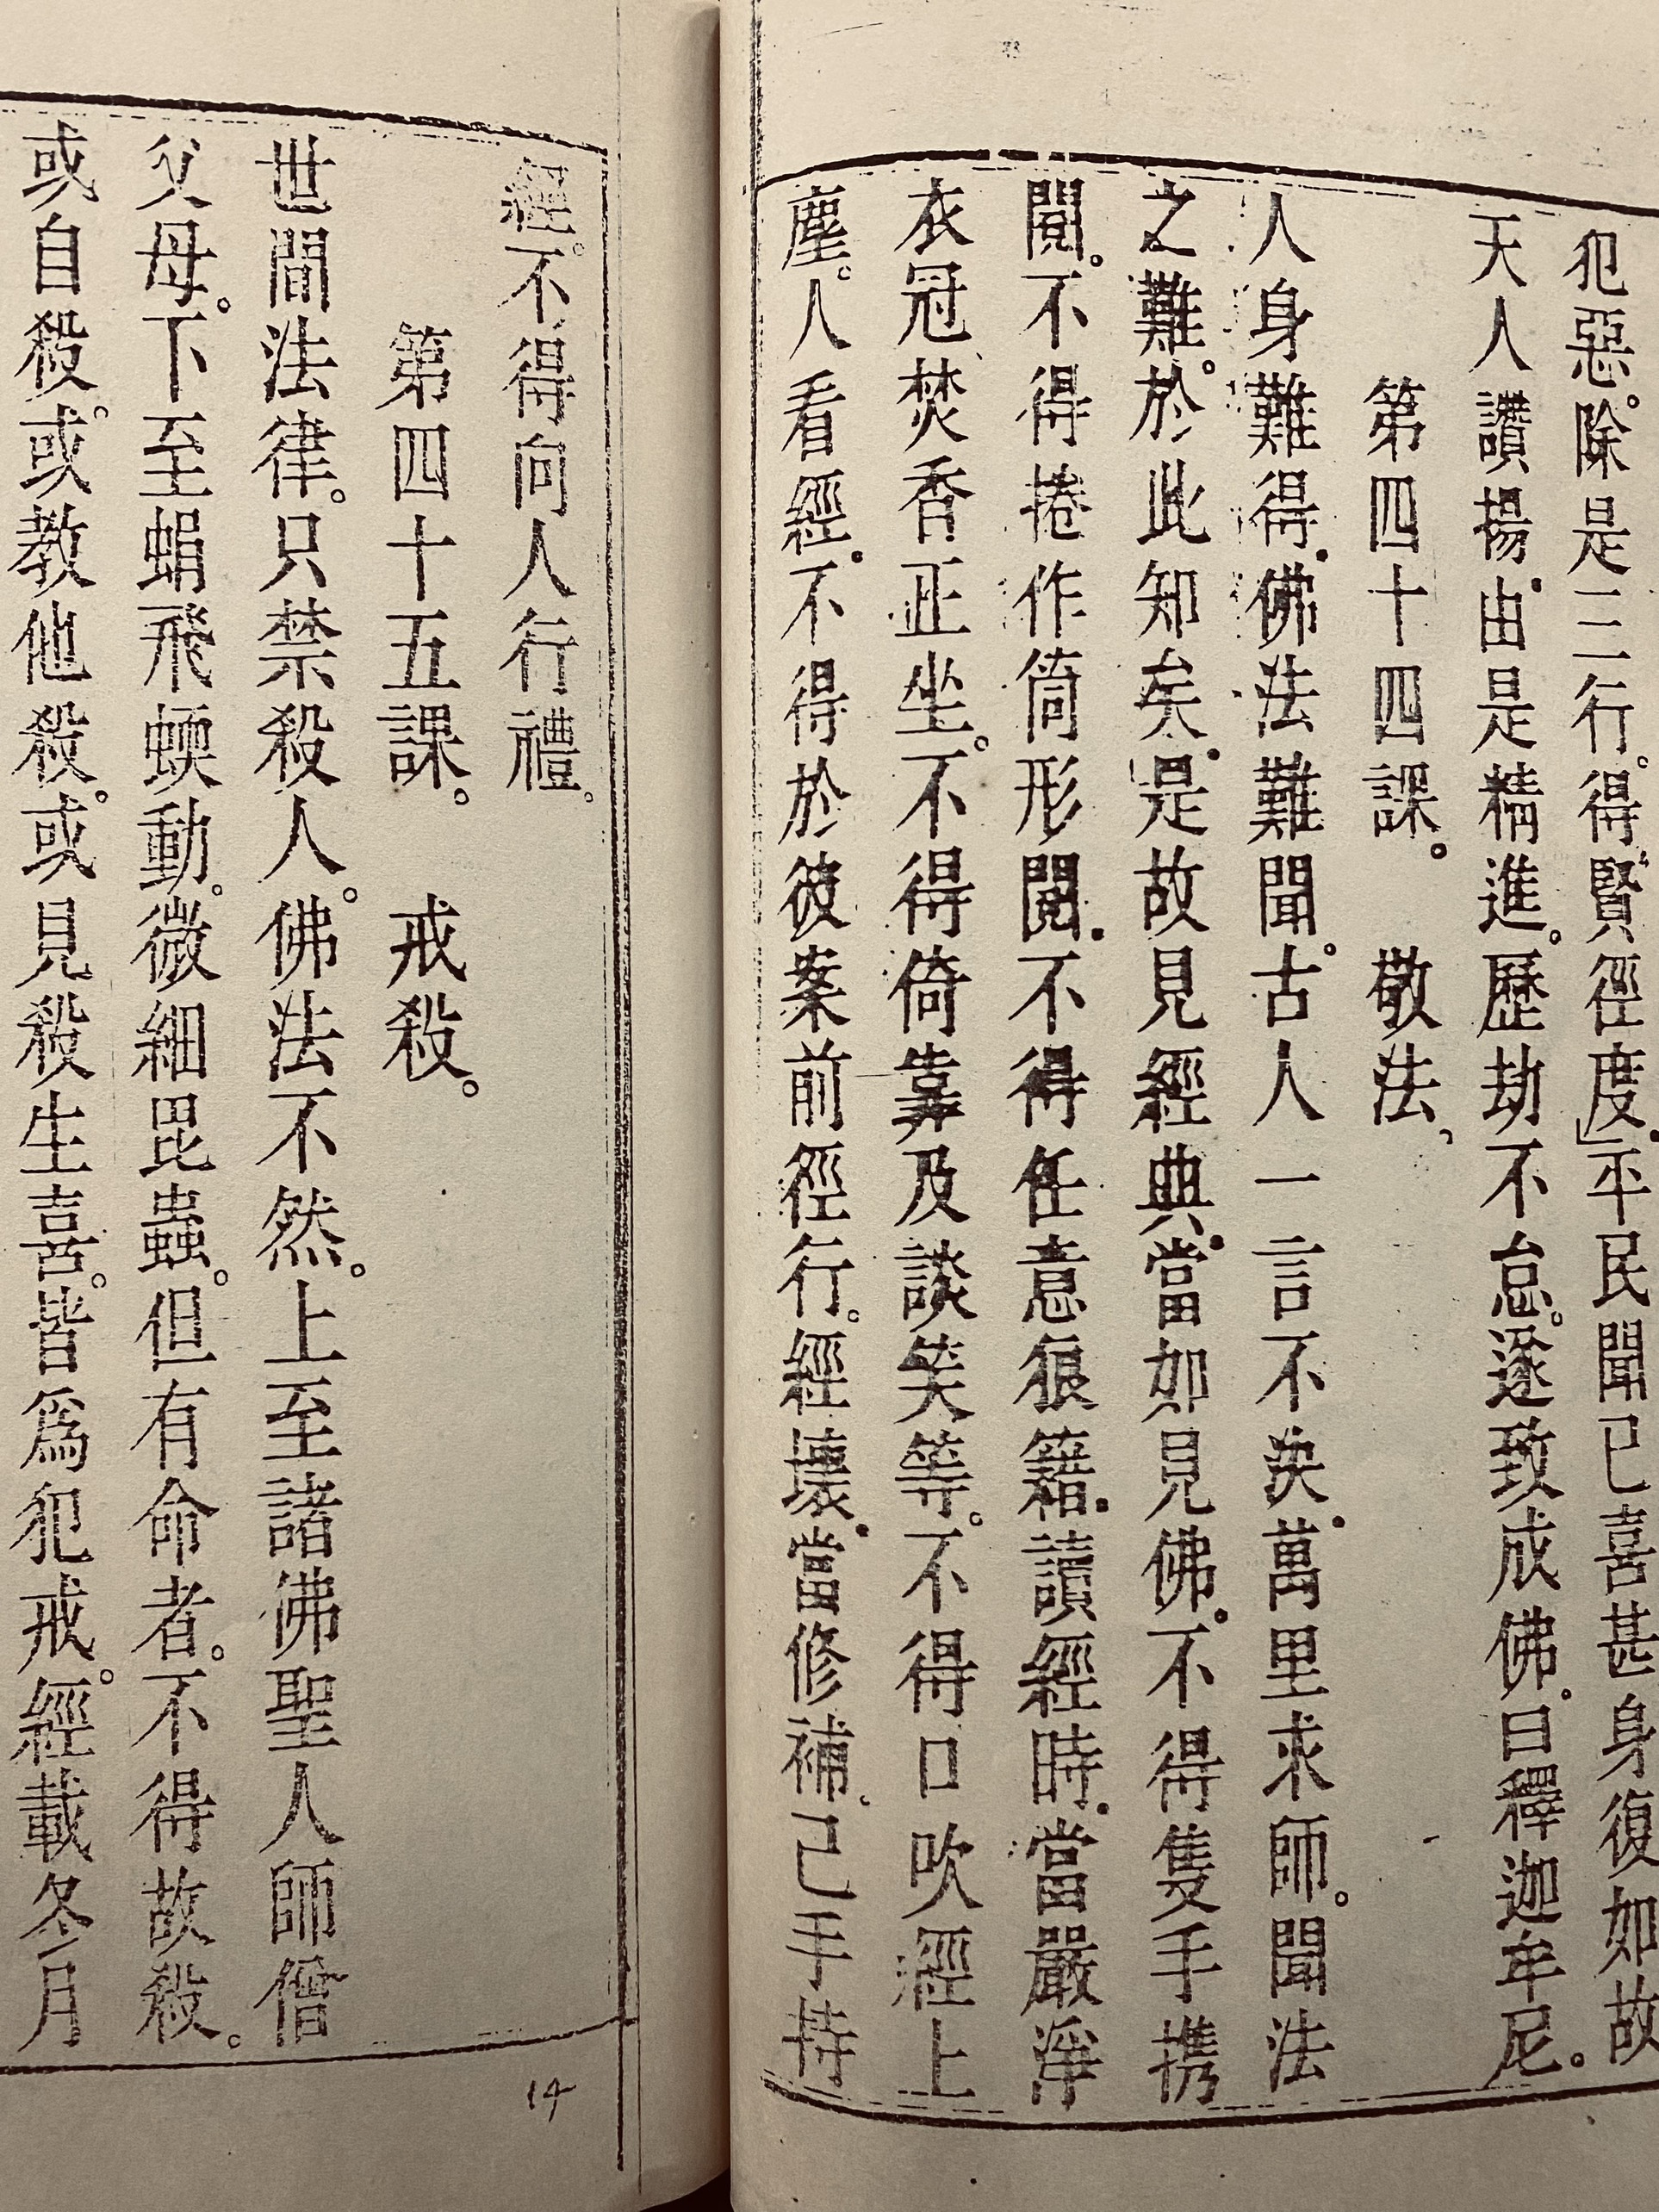 犯惡。除是三行。得賢徑度」平民聞己喜甚身復如故
天人讚揚。由是精進。歷劫不怠。遂致成佛。曰釋迦牟尼。
第四十四課。　敬法、
人身難得。佛法難聞。古人一言不決。萬里求師。聞法
之難。於此知矣。是故見經典。當如見佛。不得隻手携
閱。不得捲作筒形閱。不得任意狼籍。讀經時。當嚴淨
衣冠、焚香正坐。不得倚靠及談笑等。不得口吹經上
塵。人看經。不得於彼案前徑行。經壞。當修補、己手持
經。不得向人行禮。
第四十五課。　戒殺。
世間法律。只禁殺人。佛法不然。上至諸佛聖人師僧
父母。下至蜎飛蝡動。微細昆蟲。但有命者。不得故殺。
或自殺。或教他殺。或見殺生喜。皆爲犯戒。經載冬月
14